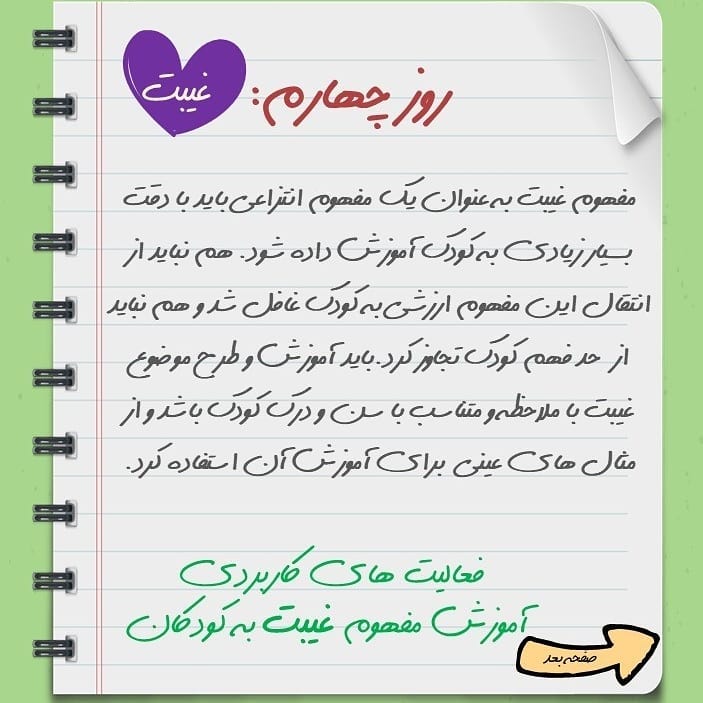 روز چهارم: غیبت
مفهوم غیبت به عنوان یک مفهوم انتزاعی باید با دقت
بسیار زیادی به کودک آموزش داده شود. هم نباید از
انتقال این مفهوم ارزشی به کودک غافل شد و هم نباید
از حد فهم کودک تجاوز کرد. باید آموزش و طرح موضوع
غیبت با ملاحظه و متناسب با سن و درک کودک باشد و از
مثال های عینی برای آموزش آن استفاده کرد.
فعالیت های کاربردی
آموزش مفهوم غیبت به کودکان
صفحه بعد